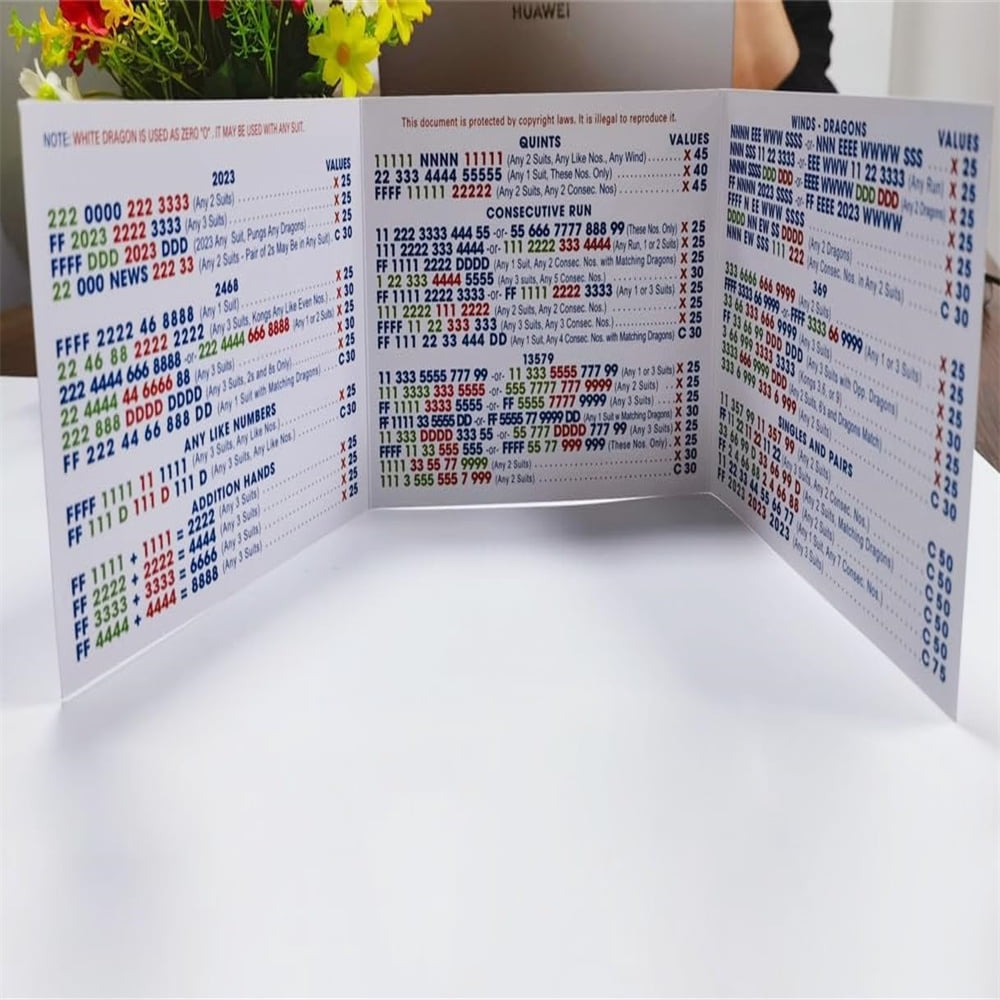 HUAWEI
NOTE: WHITE DRAGON IS USED AS ZERO "0". IT MAY BE USED WITH ANY SUIT.
VALUES
2023
222 0000 222 3333 (Any 2 Suits) X 25
FF 2023 2222 3333 (Any 3 Suits) X 25
FFFF DDD 2023 DDD (2023 Any Suit, Pungs Any Dragons) X 25
22 000 NEWS 222 33 (Any 2 Suits - Pair of 2s May be in Any Suit) C 30
2468
FFFF 2222 46 8888 (Any 1 Suit) X 25
22 46 88 2222 2222 (Any 3 Suits, Kongs Any Like Even Nos.) X 25
222 4444 666 8888 -or- 222 4444 666 8888 (Any 1 or 2 Suits) X 25
22 4444 44 6666 88 (Any 3 Suits) X 30
222 888 DDDD DDDD (Any 3 Suits, 2s and 8s Only) X 25
FF 222 44 66 888 DD (Any 1 Suit with Matching Dragons) C 30
ANY LIKE NUMBERS
FFFF 1111 11 1111 (Any 3 Suits, Any Like Nos.) X 25
FF 111 D 111 D 111 D (Any 3 Suits, Any Like Nos.) C 30
ADDITION HANDS
FF 1111 + 1111 = 2222 (Any 3 Suits) X 25
FF 2222 + 2222 = 4444 (Any 3 Suits) X 25
FF 3333 + 3333 = 6666 (Any 3 Suits) X 25
FF 4444 + 4444 = 8888 (Any 3 Suits) X 25
This document is protected by copyright laws. It is illegal to reproduce it.
QUINTS VALUES
11111 NNNN 11111 (Any 2 Suits, Any Like Nos., Any Wind) X 45
22 333 4444 55555 (Any 1 Suit, These Nos. Only) X 40
FFFF 11111 22222 (Any 2 Suits, Any 2 Consec. Nos) X 45
CONSECUTIVE RUN
11 222 3333 444 55 -or- 55 666 7777 888 99 (These Nos. Only) X 25
111 2222 333 4444 -or- 111 2222 333 4444 (Any Run, 1 or 2 Suits) X 25
FF 1111 2222 DDDD (Any 1 Suit, Any 2 Consec. Nos. with Matching Dragons) X 25
1 22 333 4444 5555 (Any 3 suits, Any 5 Consec. Nos.) X 30
FF 1111 2222 3333 -or- FF 1111 2222 3333 (Any 1 or 3 Suits) X 25
111 2222 111 2222 (Any 2 Suits, Any 2 Consec. Nos.) X 25
FFFF 11 22 333 333 (Any 3 Suits, Any 3 Consec. Nos.) X 25
FF 111 22 33 444 DD (Any 1 Suit, Any 4 Consec. Nos. with Matching Dragons) C 30
13579
11 333 5555 777 99 -or- 11 333 5555 777 99 (Any 1 or 3 Suits) X 25
111 3333 333 5555 -or- 555 7777 777 9999 (Any 2 Suits) X 25
FF 1111 3333 5555 -or- FF 5555 7777 9999 (Any 3 Suits) X 25
FF 1111 33 5555 DD -or- FF 5555 77 9999 DD (Any 1 Suit w Matching Dragons) X 30
11 333 DDDD 333 55 -or- 55 777 DDDD 777 99 (Any 3 Suits) X 30
FFFF 11 33 555 555 -or- FFFF 55 77 999 999 (These Nos. Only) X 30
1111 33 55 77 9999 (Any 2 Suits) X 30
111 3 555 555 7 999 (Any 2 Suits) C 30
WINDS - DRAGONS VALUES
NNNN EEE WWW SSSS -or- NNN EEEE WWWW SSS X 25
NNN SSS 11 22 3333 -or- EEE WWW 11 22 3333 (Any Run) X 25
NNNN SSSS DDD DDD -or- EEEE WWWW DDD DDD (Any 2 Dragons) X 25
FF NNNN 2023 SSSS -or- FF EEEE 2023 WWWW X 25
FFFF N EE WWW SSSS X 25
DDDD NN EW SS DDDD (Any 2 Dragons) X 30
NNN EW SSS 111 222 (Any Consec. Nos. in Any 2 Suits) C 30
369
333 6666 666 9999 (Any 2 Suits) X 25
FFFF 3333 66 9999 -or- FFFF 3333 66 9999 (Any 1 or 3 Suits) X 25
33 66 333 666 9999 (Any 3 Suits) X 25
FF 33 66 99 DDD DDD
3 66 999 3333 3333 (Kongs 3,6, or 9)
3333 666 9999 DDD
333 6 999 333 6 999 (Any 2 Suits) C 30
SINGLES AND PAIRS
11 357 99 11 357 99 (Any 2 Suits) C 50
C 50
C 50
C 50
C 50
FF 2023 2023 2023 (Any 3 Suits) C 75